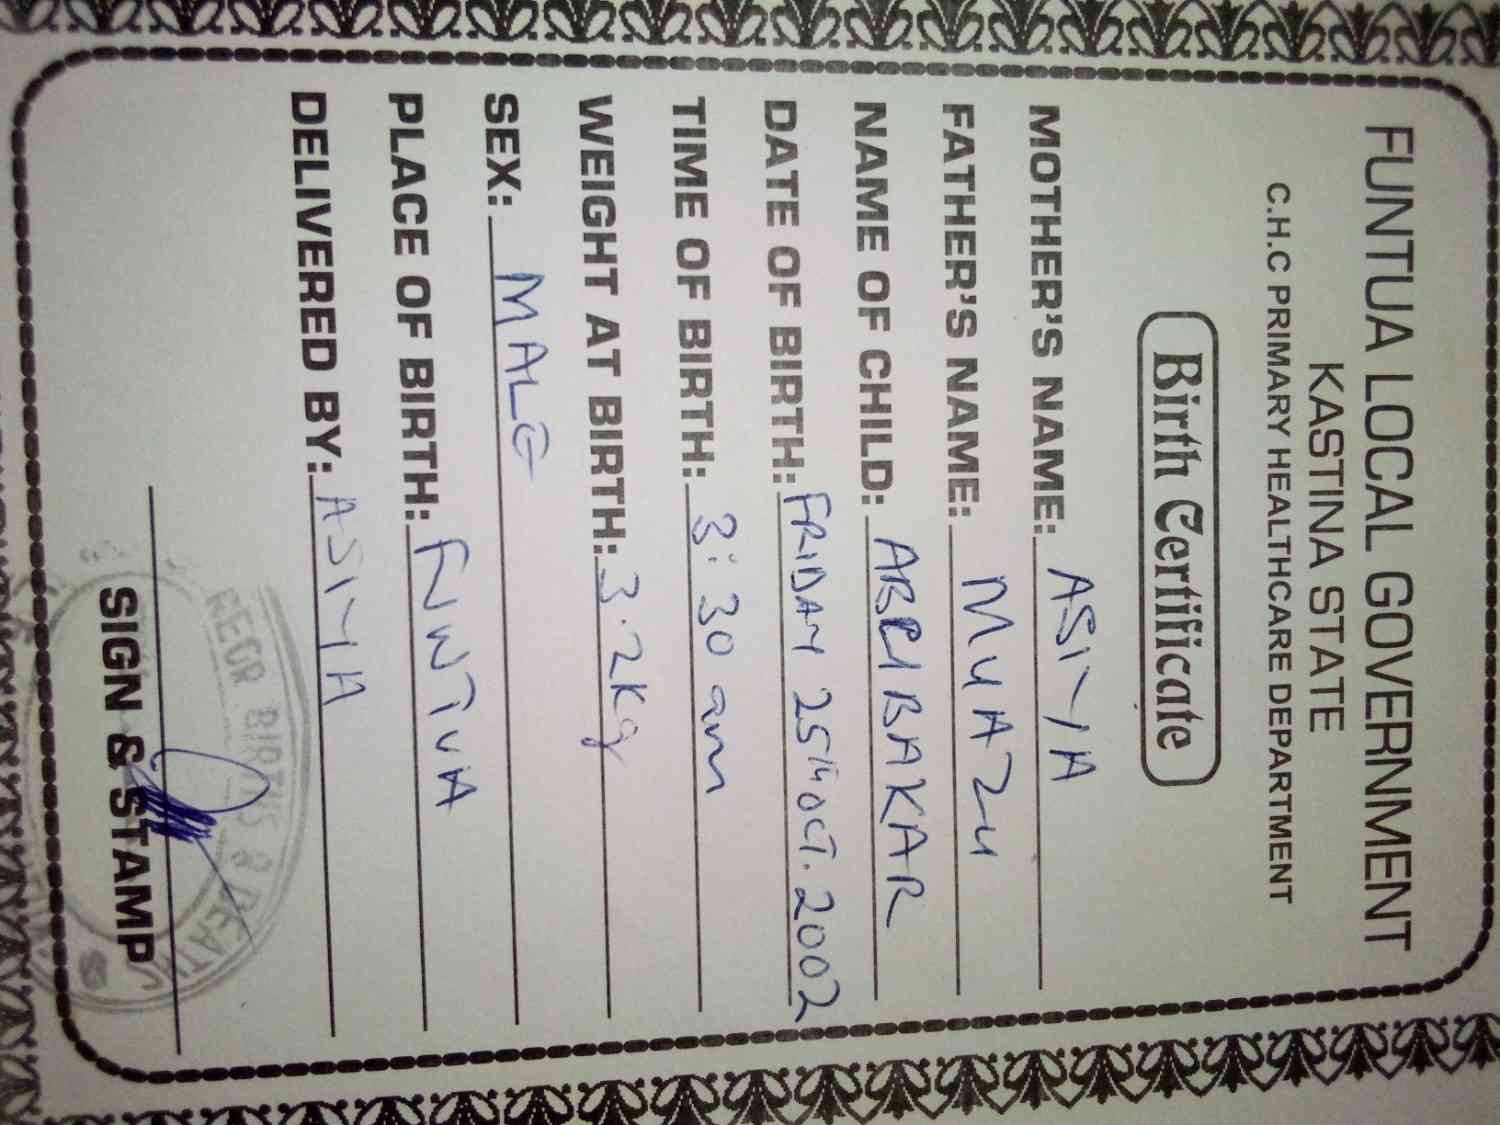 FUNTUA LOCAL GOVERNMENT
KASTINA STATE
C.H.C PRIMARY HEALTHCARE DEPARTMENT
Birth Certificate
MOTHER'S NAME: ASIYA
FATHER'S NAME: MUAZU
NAME OF CHILD: ABUBAKAR
DATE OF BIRTH: FRIDAY 25TH OCT. 2002
TIME OF BIRTH: 3:30 am
WEIGHT AT BIRTH: 3.2Kg
SEX: MALE
PLACE OF BIRTH: FUNTUA
DELIVERED BY: ASIYA
SIGN & STAMP
BIRTHS &